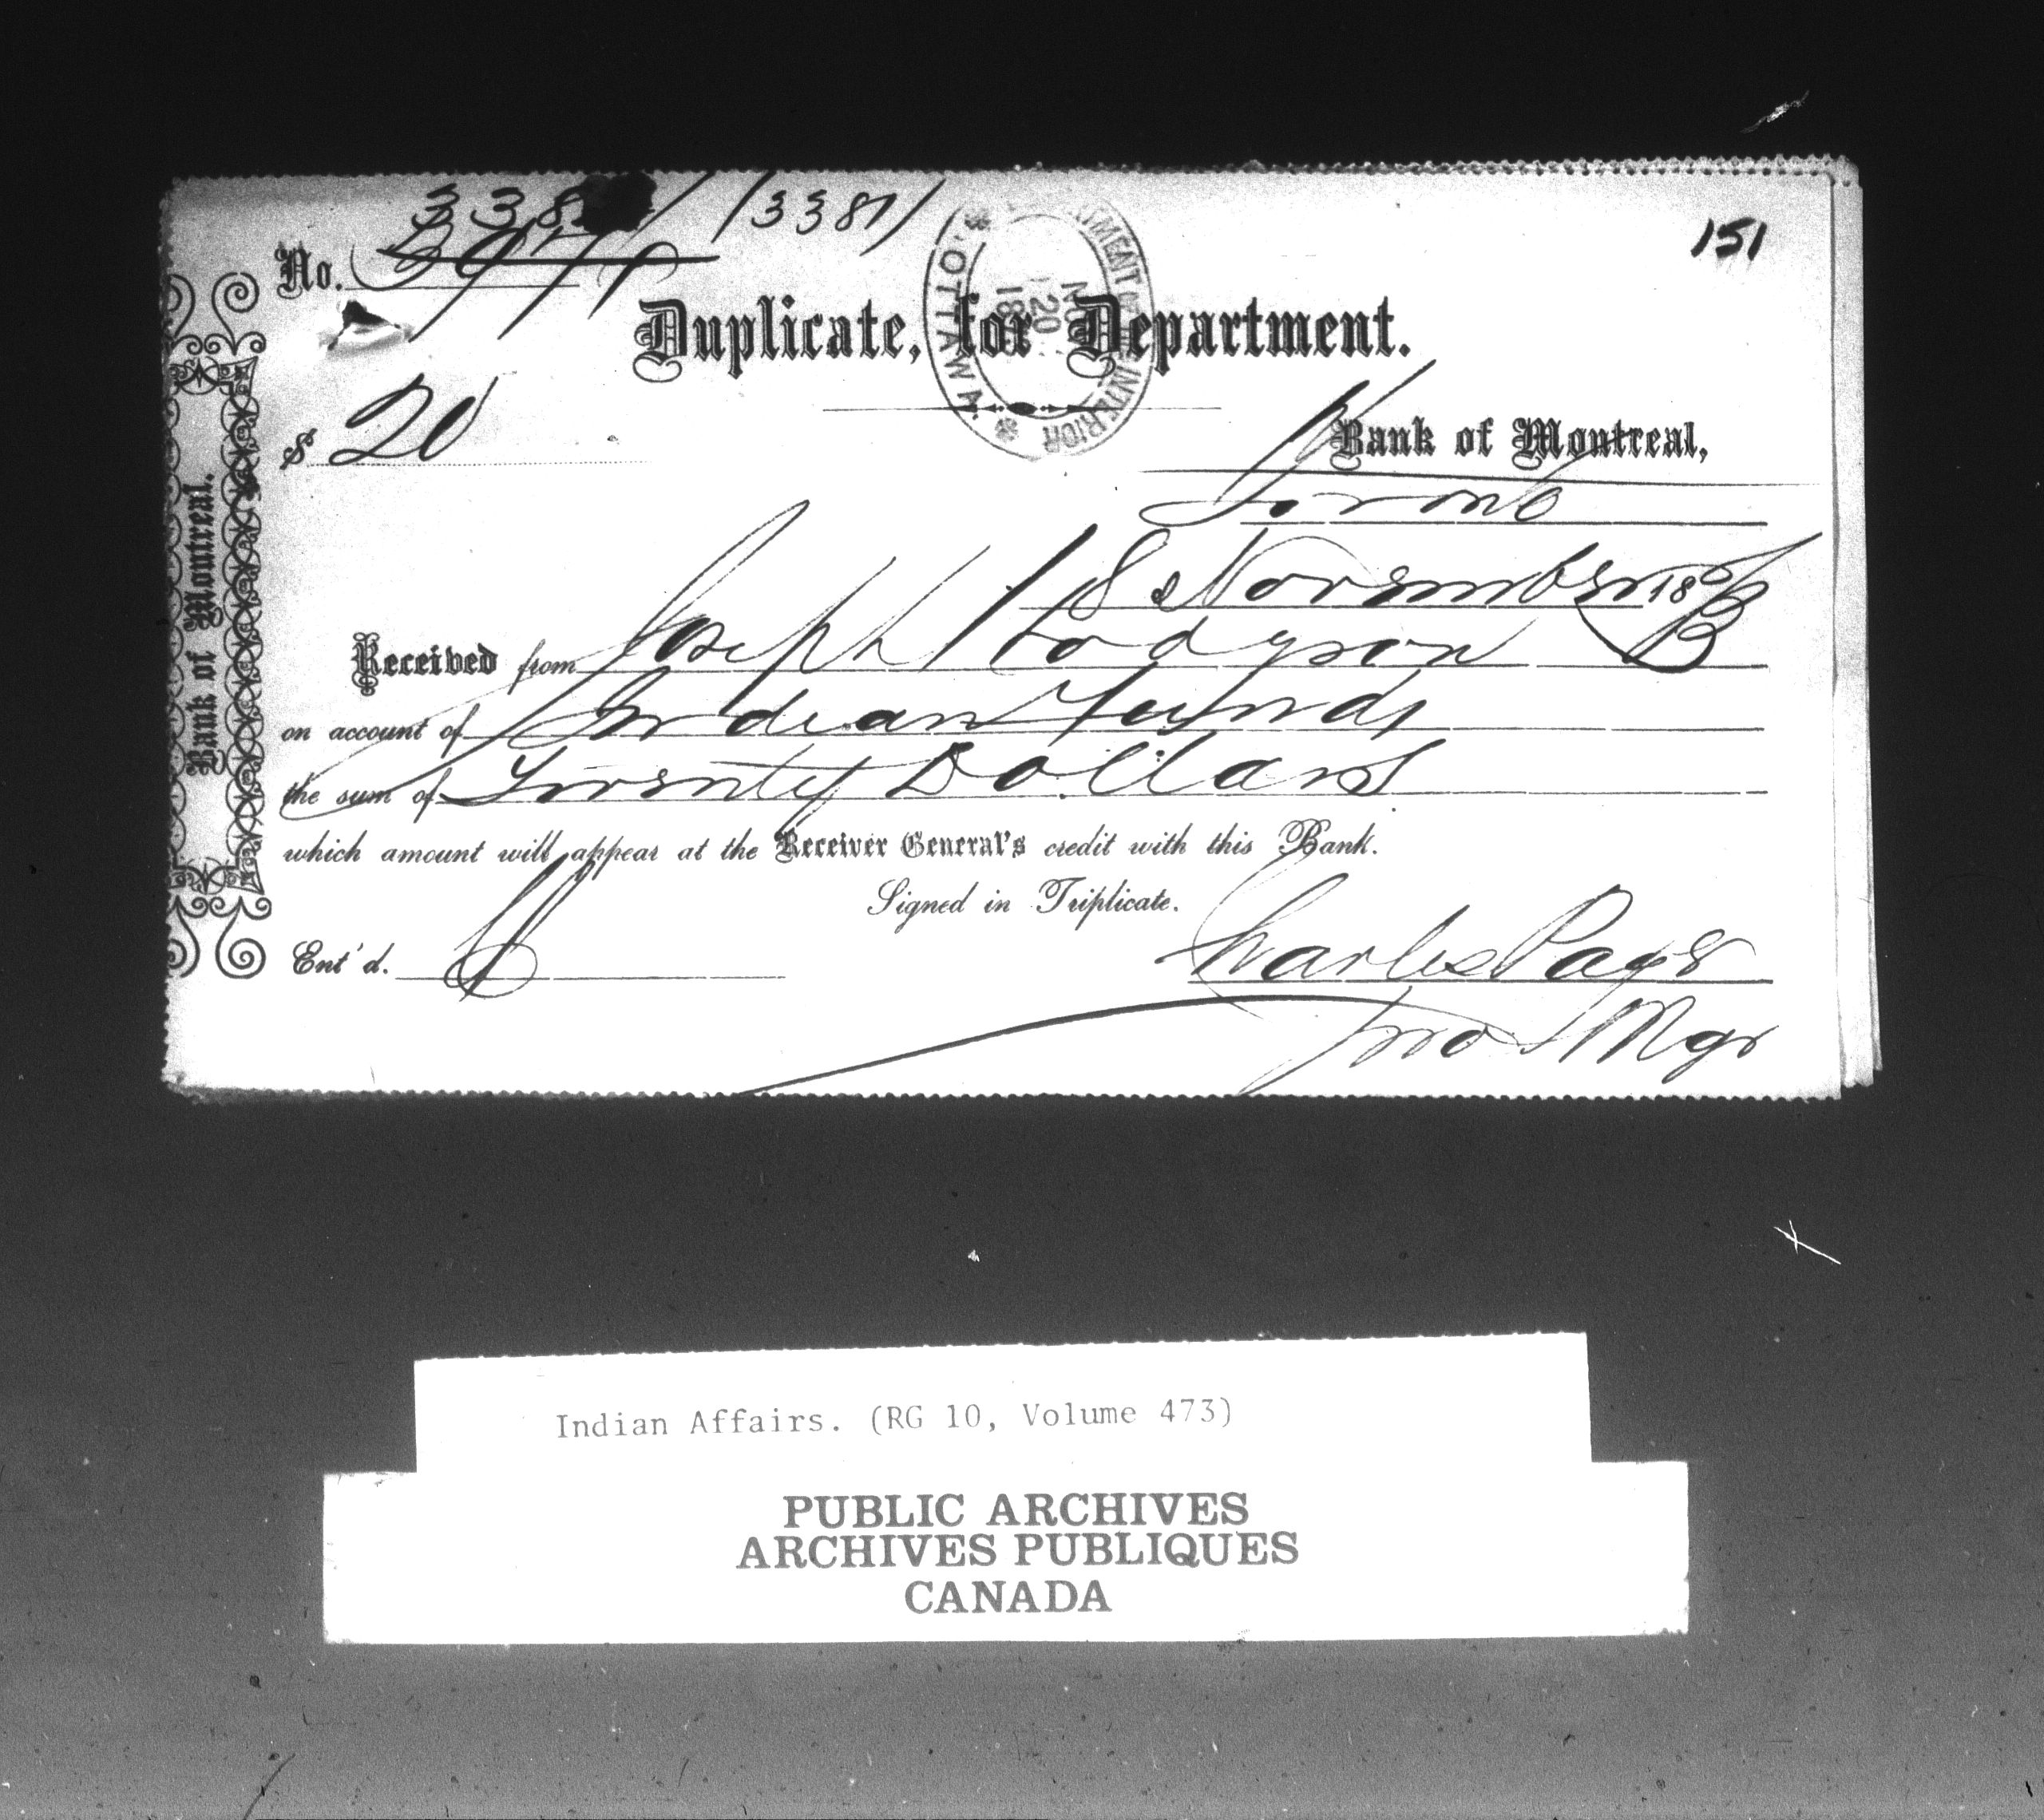 338 /3381/
151
No.
Duplicate, for Department.
DEPARTMENT OF THE INTERIOR
OTTAWA.
NO 20 18
$ 20
Bank of Montreal,
Toronto
18 November 18
Received from Joseph Hodgson
on account of Indian Funds
the sum of Twenty Dollars
which amount will appear at the Receiver General's credit with this Bank.
Signed in Triplicate.
Ent'd.
Charles Page
Mgr
Bank of Montreal.
Indian Affairs. (RG 10, Volume 473)
PUBLIC ARCHIVES
ARCHIVES PUBLIQUES
CANADA